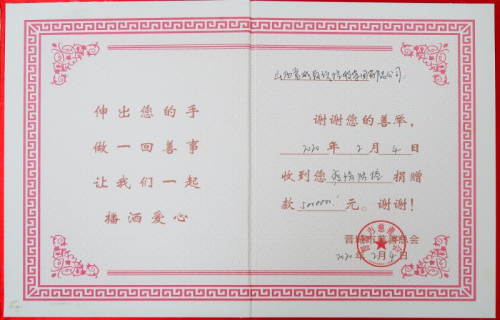 伸出您的手
做一回善事
让我们一起
播洒爱心
山西
公司:
谢谢您的善举,
2020年2月4日
收到您疫情防控捐赠
款5000000元。谢谢!
晋城市慈善总会
2020年2月4日